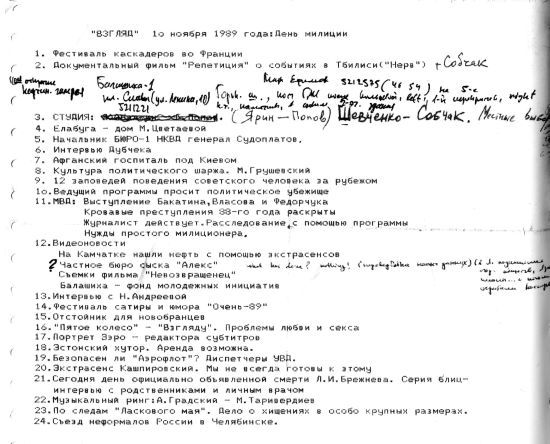 "ВЗГЛЯД" 1о ноября 1989 года:День милиции
1. Фестиваль каскадеров во Франции
2. Документальный фильм "Репетиция" о событиях в Тбилиси("Нерв") + Собчак
Балашиха-1
5212535 (46 54)
521221
3. СТУДИЯ: (Ярин-Попов) Шевченко-Собчак. Местные выборы
4. Елабуга - дом М.Цветаевой
5. Начальник БЮРО-1 НКВД генерал Судоплатов.
6. Интервью Дубчека
7. Афганский госпиталь под Киевом
8. Культура политического шаржа. М.Грушевский
9. 12 заповедей поведения советского человека за рубежом
1о.Ведущий программы просит политическое убежище
11.МВД: Выступление Бакатина,Власова и Федорчука
Кровавые преступления 88-го года раскрыты
Журналист действует.Расследование с помощью программы
Нужды простого милиционера.
12.Видеоновости
На Камчатке нашли нефть с помощью экстрасенсов
? Частное бюро сыска "Алекс"
Съемки фильма "Невозвращенец"
Балашиха - фонд молодежных инициатив
13.Интервью с Н.Андреевой
14.Фестиваль сатиры и юмора "Очень-89"
15.Отстойник для новобранцев
16."Пятое колесо" - "Взгляду". Проблемы любви и секса
17.Портрет Зэро - редактора субтитров
18.Эстонский хутор. Аренда возможна.
19.Безопасен ли "Аэрофлот"? Диспетчеры УВД.
20.Экстрасенс Кашпировский. Мы не всегда готовы к этому
21.Сегодня день официально объявленной смерти Л.И.Брежнева. Серия блиц-
интервью с родственниками и личным врачом
22.Музыкальный ринг:А.Градский - М.Таривердиев
23.По следам "Ласкового мая". Дело о хищениях в особо крупных размерах.
24.Съезд неформалов России в Челябинске.